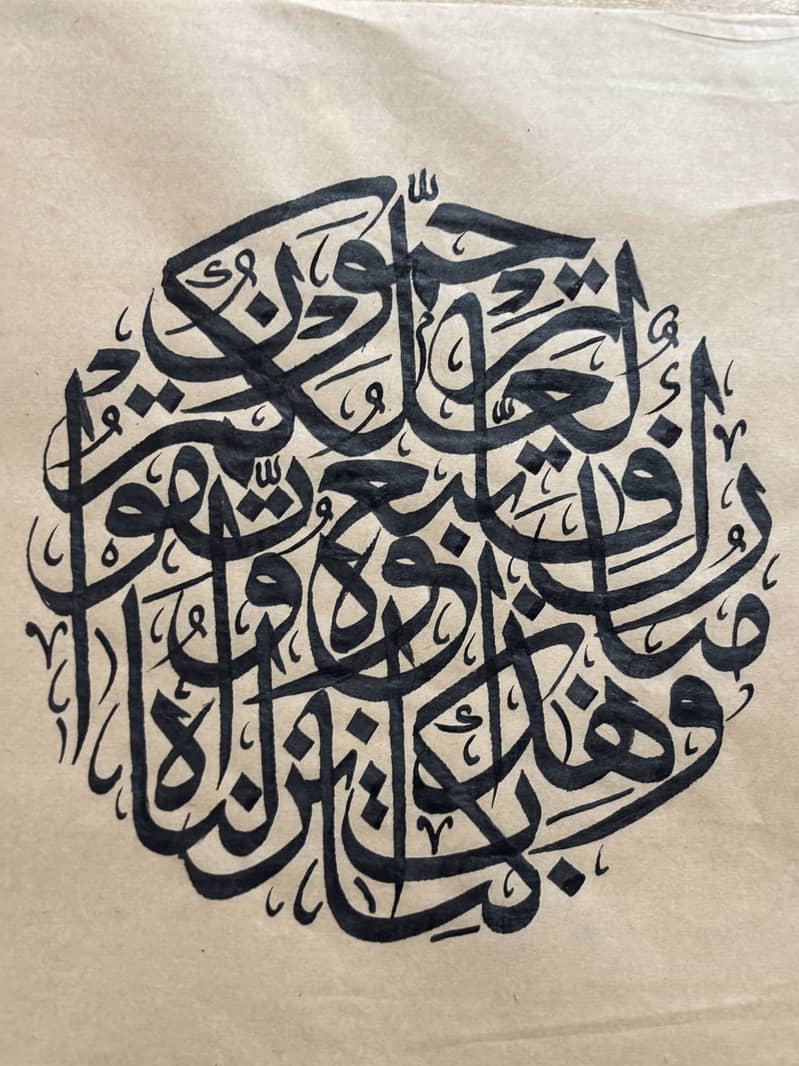 وَهَٰذَا كِتَابٌ أَنزَلْنَاهُ مُبَارَكٌ فَاتَّبِعُوهُ وَاتَّقُوا لَعَلَّكُمْ تُرْحَمُونَ